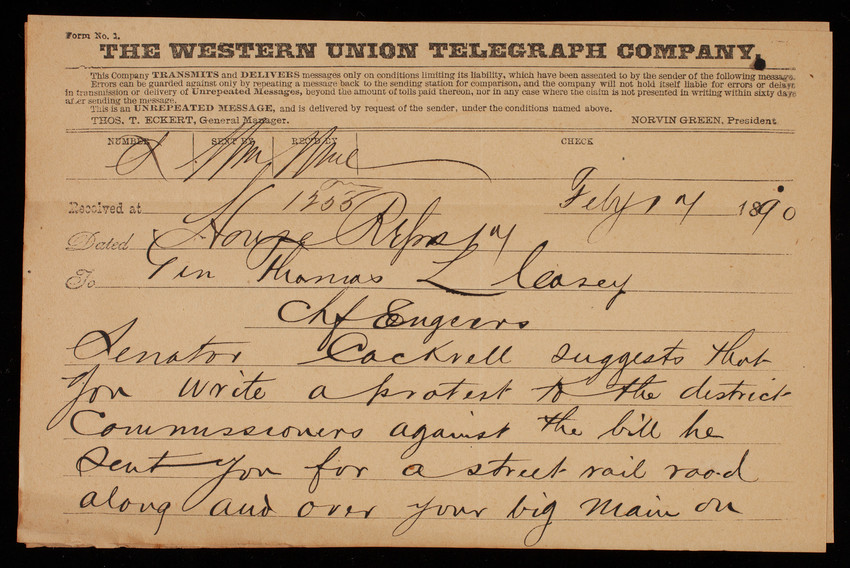 Form No. 1.
THE WESTERN UNION TELEGRAPH COMPANY.
This Company TRANSMITS and DELIVERS messages only on conditions limiting its liability, which have been assented to by the sender of the following message.
Errors can be guarded against only by repeating a message back to the sending station for comparison, and the company will not hold itself liable for errors or delays
in transmission or delivery of Unrepeated Messages, beyond the amount of tolls paid thereon, nor in any case where the claim is not presented in writing within sixty days
after sending the message.
This is an UNREPEATED MESSAGE, and is delivered by request of the sender, under the conditions named above.
THOS. T. ECKERT, General Manager. NORVIN GREEN, President.
NUMBER SENT BY REC'D BY CHECK
Received at 1255 Feby 17 1890
Dated House Reps 17
To Gen Thomas L Casey
Chf Engeers
Senator Cockrell suggests that
you write a protest to the district
Commissioners against the bill he
sent you for a street rail road
along and over your big main on